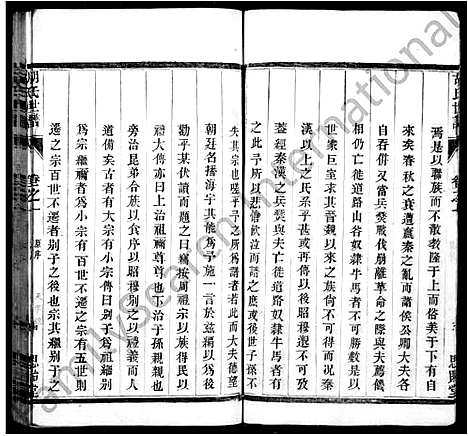 焉是以聯族而不敢者隆于上而俗美于下由有
來矣春秋之衰遭嬴秦之亂而諸侯
自吞併又當兵燹戰伐崩離革命之際與夫夫
相仍亡徙道路山谷奴隸牛馬者不可
勝數是以
世衆巨室如晉魏以來之族尚不可得而世况秦
漢以上之氏系乎甚
蓋經秦漢之兵燹與夫亡徙道路奴隸牛馬者
之於此于所不能而謂之庶或後世子
失其宗也嗟乎子之所爲譜者若此而大夫德望
朝廷名播海宇其能爲此施一言於茲編以
勸乎某伏讀而題之曰嗚按周禮宗以族得民以
禮大傳亦曰上治祖禰尊尊也下治于孫親親也
旁治昆弟合族以食序以昭穆别之以禮義而人
道備矣古者大宗有小宗傳曰别子爲祖繼别
爲宗繼禰者爲小宗有百世不遷之宗有五世則
遷之宗百世不遷者别子之後也宗其繼别子之
胡氏世譜
卷之一
胡氏世譜
卷之一
FamilySearch International